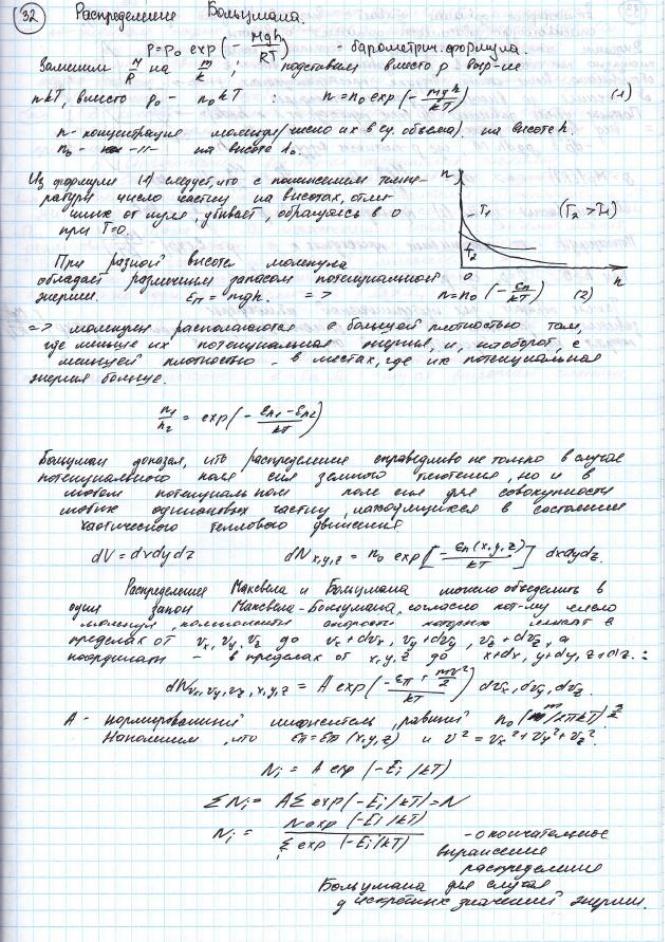 32 Распределение Больцмана.
p = p₀ exp(- Mgh/RT) - барометрич. формула.
Заменим M/R на m/k ; подставим вместо p выр-ие
nkT, вместо p₀ - n₀kT : n = n₀ exp(- mgh/kT) (1)
n - концентрация молекул (число их в ед. объема) на высоте h.
n₀ - -//- на высоте h₀.
Из формулы (1) следует, что с понижением темпе-
ратуры число частиц на высотах, отли-
чных от нуля, убывает, обращаясь в 0
при T=0.
n
T₁ (T₂ > T₁)
T₂
0 h
При разной высоте молекула
обладает различным запасом потенциальной
энергии. εп = mgh. => n = n₀ (- εп/kT) (2)
=> молекулы располагаются с большей плотностью там,
где меньше их потенциальная энергия, и, наоборот, с
меньшей плотностью - в местах, где их потенциальная
энергия больше.
n₁/n₂ = exp(- εп1 - εп2/kT)
Больцман доказал, что распределение справедливо не только в случае
потенциального поля сил земного тяготения, но и в
любом потенциальном поле сил для совокупности
любых одинаковых частиц, находящихся в состоянии
хаотического теплового движения
dV = dxdydz dNx,y,z = n₀ exp[- εп(x,y,z)/kT] dxdydz.
Распределения Максвела и Больцмана можно объеденить в
один закон Максвела-Больцмана, согласно кот-му число
молекул, компоненты скорости которых лежат в
пределах от vx, vy, vz до vx + dvx, vy + dvy, vz + dvz, а
координаты - в пределах от x, y, z до x+dx, y+dy, z+dz. :
dNvx,vy,vz,x,y,z = A exp(- εп + mv²/2 / kT) dvx, dvy, dvz.
A - нормировочный множитель, равный n₀ (m/2πkT)^3/2
Напомним, что εп = εп (x,y,z) и v² = vx² + vy² + vz².
Ni = A exp (-Ei/kT)
ΣNi = AΣ exp(-Ei/kT) = N
Ni = N exp (-Ei/kT) / Σi exp (-Ei/kT) - окончательное
выражение
распределение
Больцмана для случая
дискретных значений энергии.